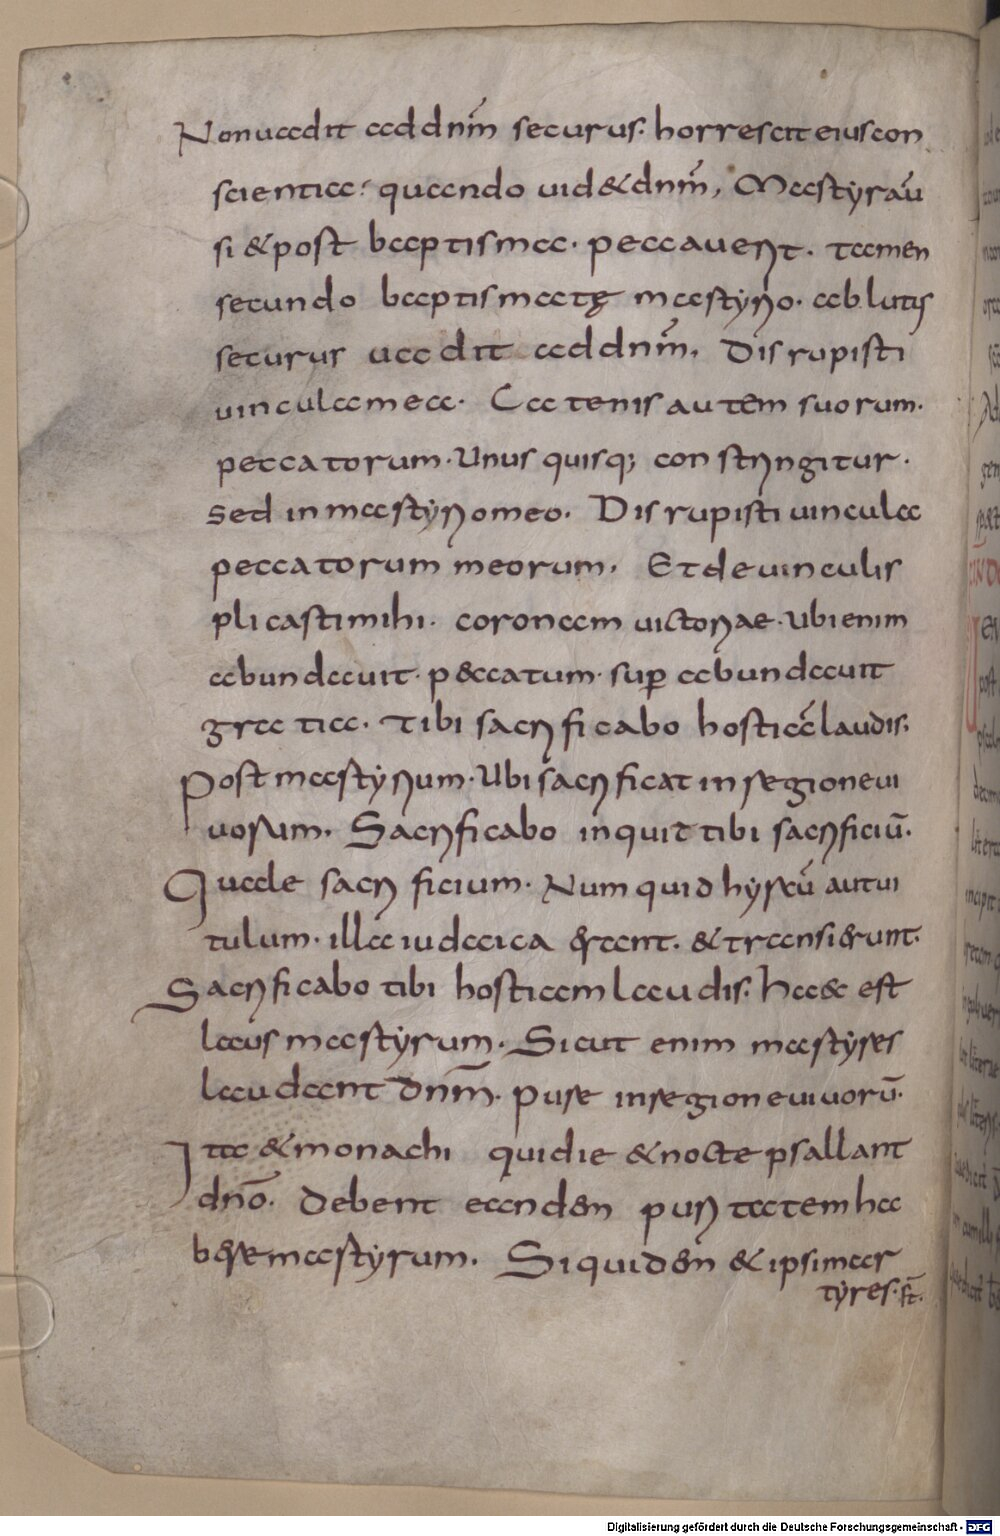 Non uadit ad dnm̄ securus. horrescit eius con
scientia. quando uid& dnm̄, Martyr aū
si & post baptisma. peccauerit. tamen
secundo baptismate martyrio. ablutus
securus uadit ad dnm̄. Disrupisti
uincula mea. Catenis autem suorum.
peccatorum. Unusquisq; constringitur.
Sed in martyrio meo. Disrupisti uincula
peccatorum meorum. Et de uinculis
plicasti mihi. coronam uictoriae. Ubi enim
abundauit. peccatum. sup̱ abundauit
gratia. Tibi sacrificabo hostiā laudis.
Post martyrium. Ubi sacrificat in regione ui
uorum. Sacrificabo inquit tibi sacrificiū.
Quale sacrificium. Numquid hyrcū aut ui
tulum. illa iudaica erant. & transierunt.
Sacrificabo tibi hostiam laudis. Haec est
laus martyrum. Sicut enim martyres
laudant dnm̄. pure in regione uiuorū.
Ita & monachi qui die & nocte psallant
dnō. Debent eandem puritatem ha
bere martyrum. Siquidem & ipsi mar
tyres. st̄.
Digitalisierung gefördert durch die Deutsche Forschungsgemeinschaft - DFG